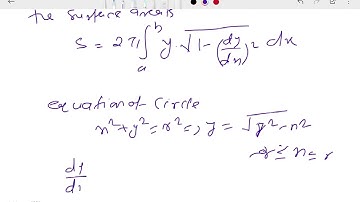 the surface area is
S = 2π ∫_a^b y √(1 - (dy/dx)²) dx
equation of circle
x² + y² = r² ⇒ y = √(r² - x²)
-r ≤ x ≤ r
dy/dx